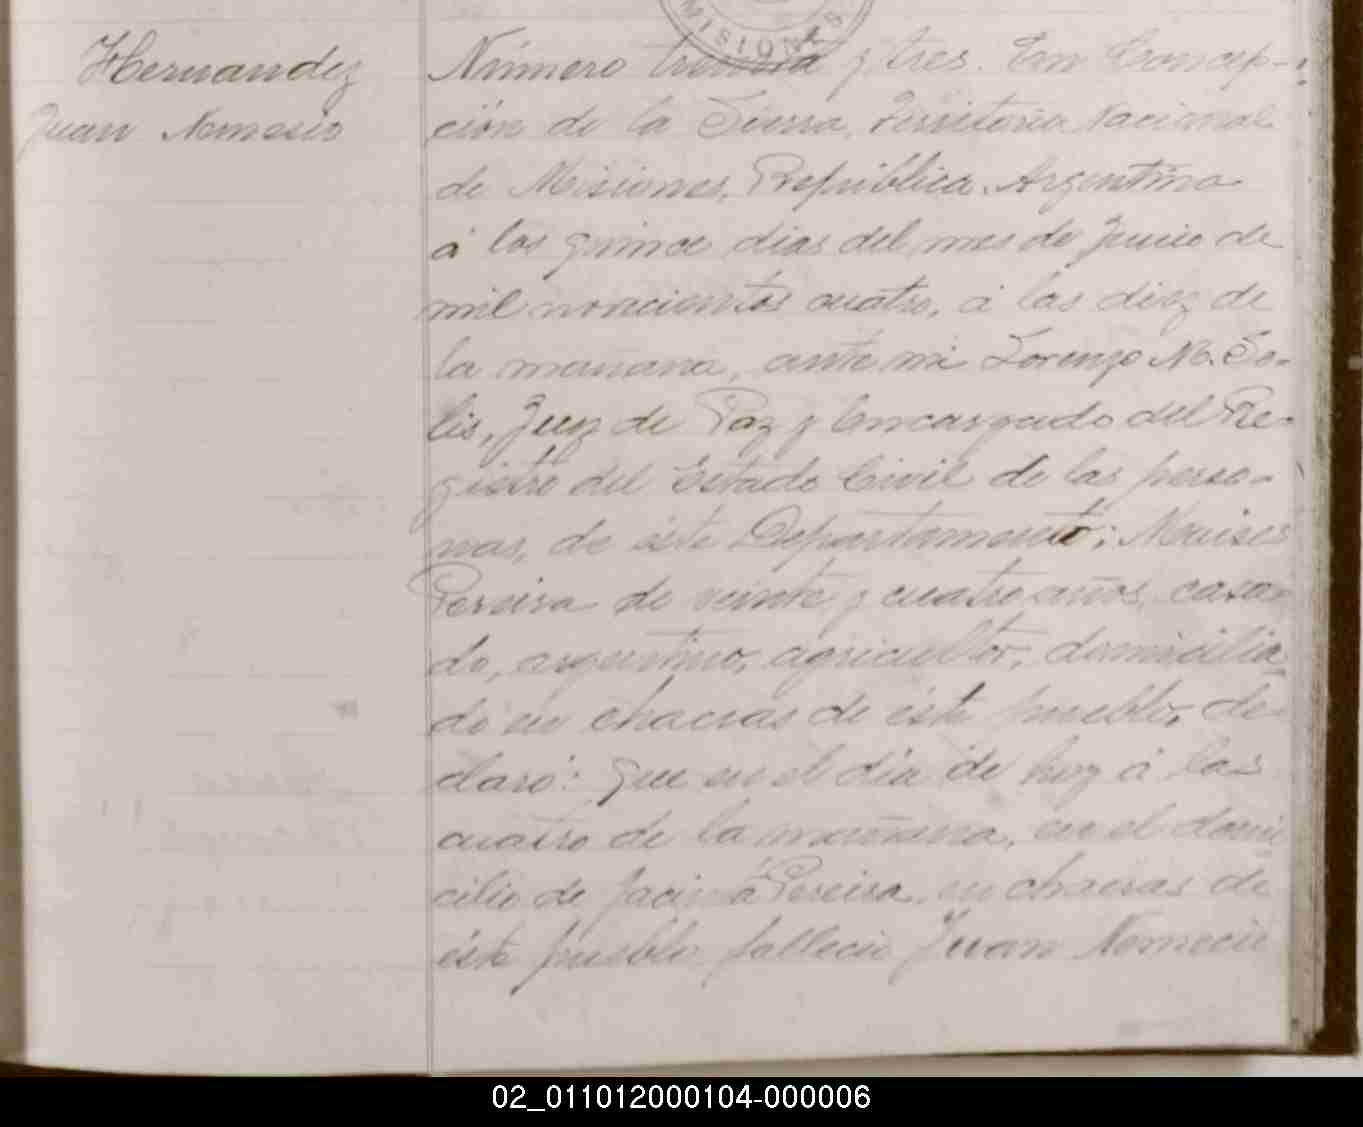 MISIONES
Hernandez
Juan Nemesio
Número treinta y tres. En Concep-
ción de la Sierra, Territorio Nacional
de Misiones, República Argentina
á los quince dias del mes de Junio de
mil novecientos cuatro, á las diez de
la mañana, ante mi Lorenzo M. So-
lis, Juez de Paz y Encargado del Re-
gistro del Estado Civil de las perso-
nas, de éste Departamento; Moises
Pereira de veinte y cuatro años, casa-
do, argentino, agricultor, domicilia-
do en chacras de éste pueblo, de-
claró: Que en el dia de hoy á las
cuatro de la mañana, en el domi
cilio de Pereira, en chacras de
éste pueblo falleció Juan Nemecio
02_011012000104-000006